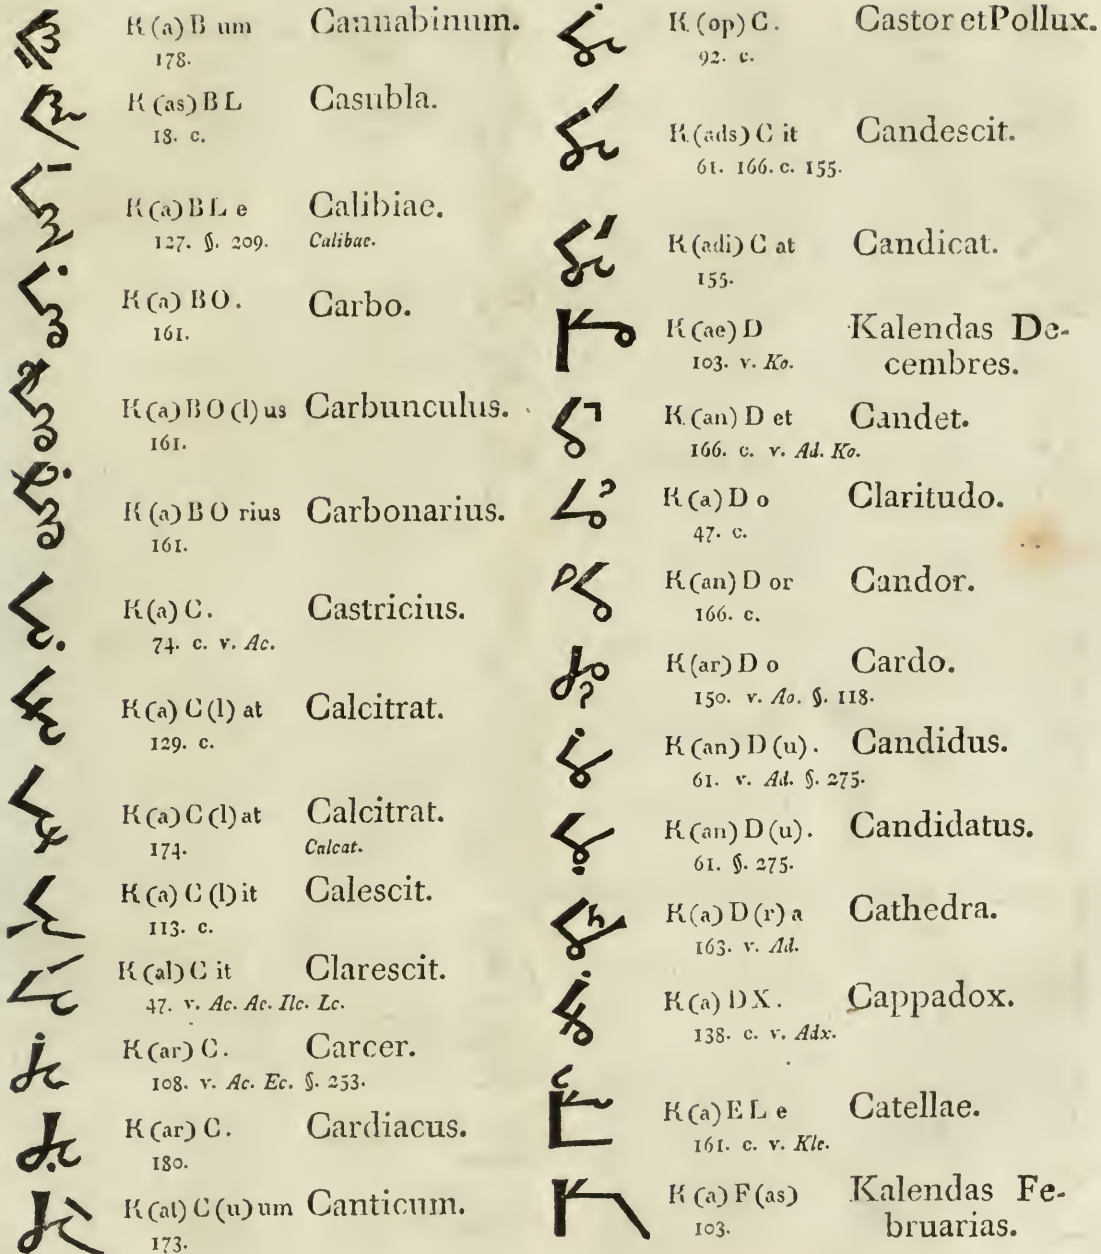 K (a) B um Cannabinum.
178.
K (as) B L Casubla.
18. c.
K (a) B L e Calibiae.
127. §. 209. Calibae.
K (a) B O. Carbo.
161.
K (a) B O (l) us Carbunculus.
161.
K (a) B O rius Carbonarius.
161.
K (a) C. Castricius.
74. c. v. Ac.
K (a) C (l) at Calcitrat.
129. c.
K (a) C (l) at Calcitrat.
174. Calcat.
K (a) C (l) it Calescit.
113. c.
K (al) C it Clarescit.
47. v. Ac. Ac. Ilc. Lc.
K (ar) C. Carcer.
108. v. Ac. Ec. §. 253.
K (ar) C. Cardiacus.
180.
K (at) C (u) um Canticum.
173.
K (op) C. Castor et Pollux.
92. c.
K (ads) C it Candescit.
61. 166. c. 155.
K (adi) C at Candicat.
155.
K (ae) D Kalendas De-
103. v. Ko. cembres.
K (an) D et Candet.
166. c. v. Ad. Ko.
K (a) D o Claritudo.
47. c.
K (an) D or Candor.
166. c.
K (ar) D o Cardo.
150. v. Ao. §. 118.
K (an) D (u). Candidus.
61. v. Ad. §. 275.
K (an) D (u). Candidatus.
61. §. 275.
K (a) D (r) a Cathedra.
163. v. Ad.
K (a) D X. Cappadox.
138. c. v. Adx.
K (a) E L e Catellae.
161. c. v. Kle.
K (a) F (as) Kalendas Fe-
103. bruarias.